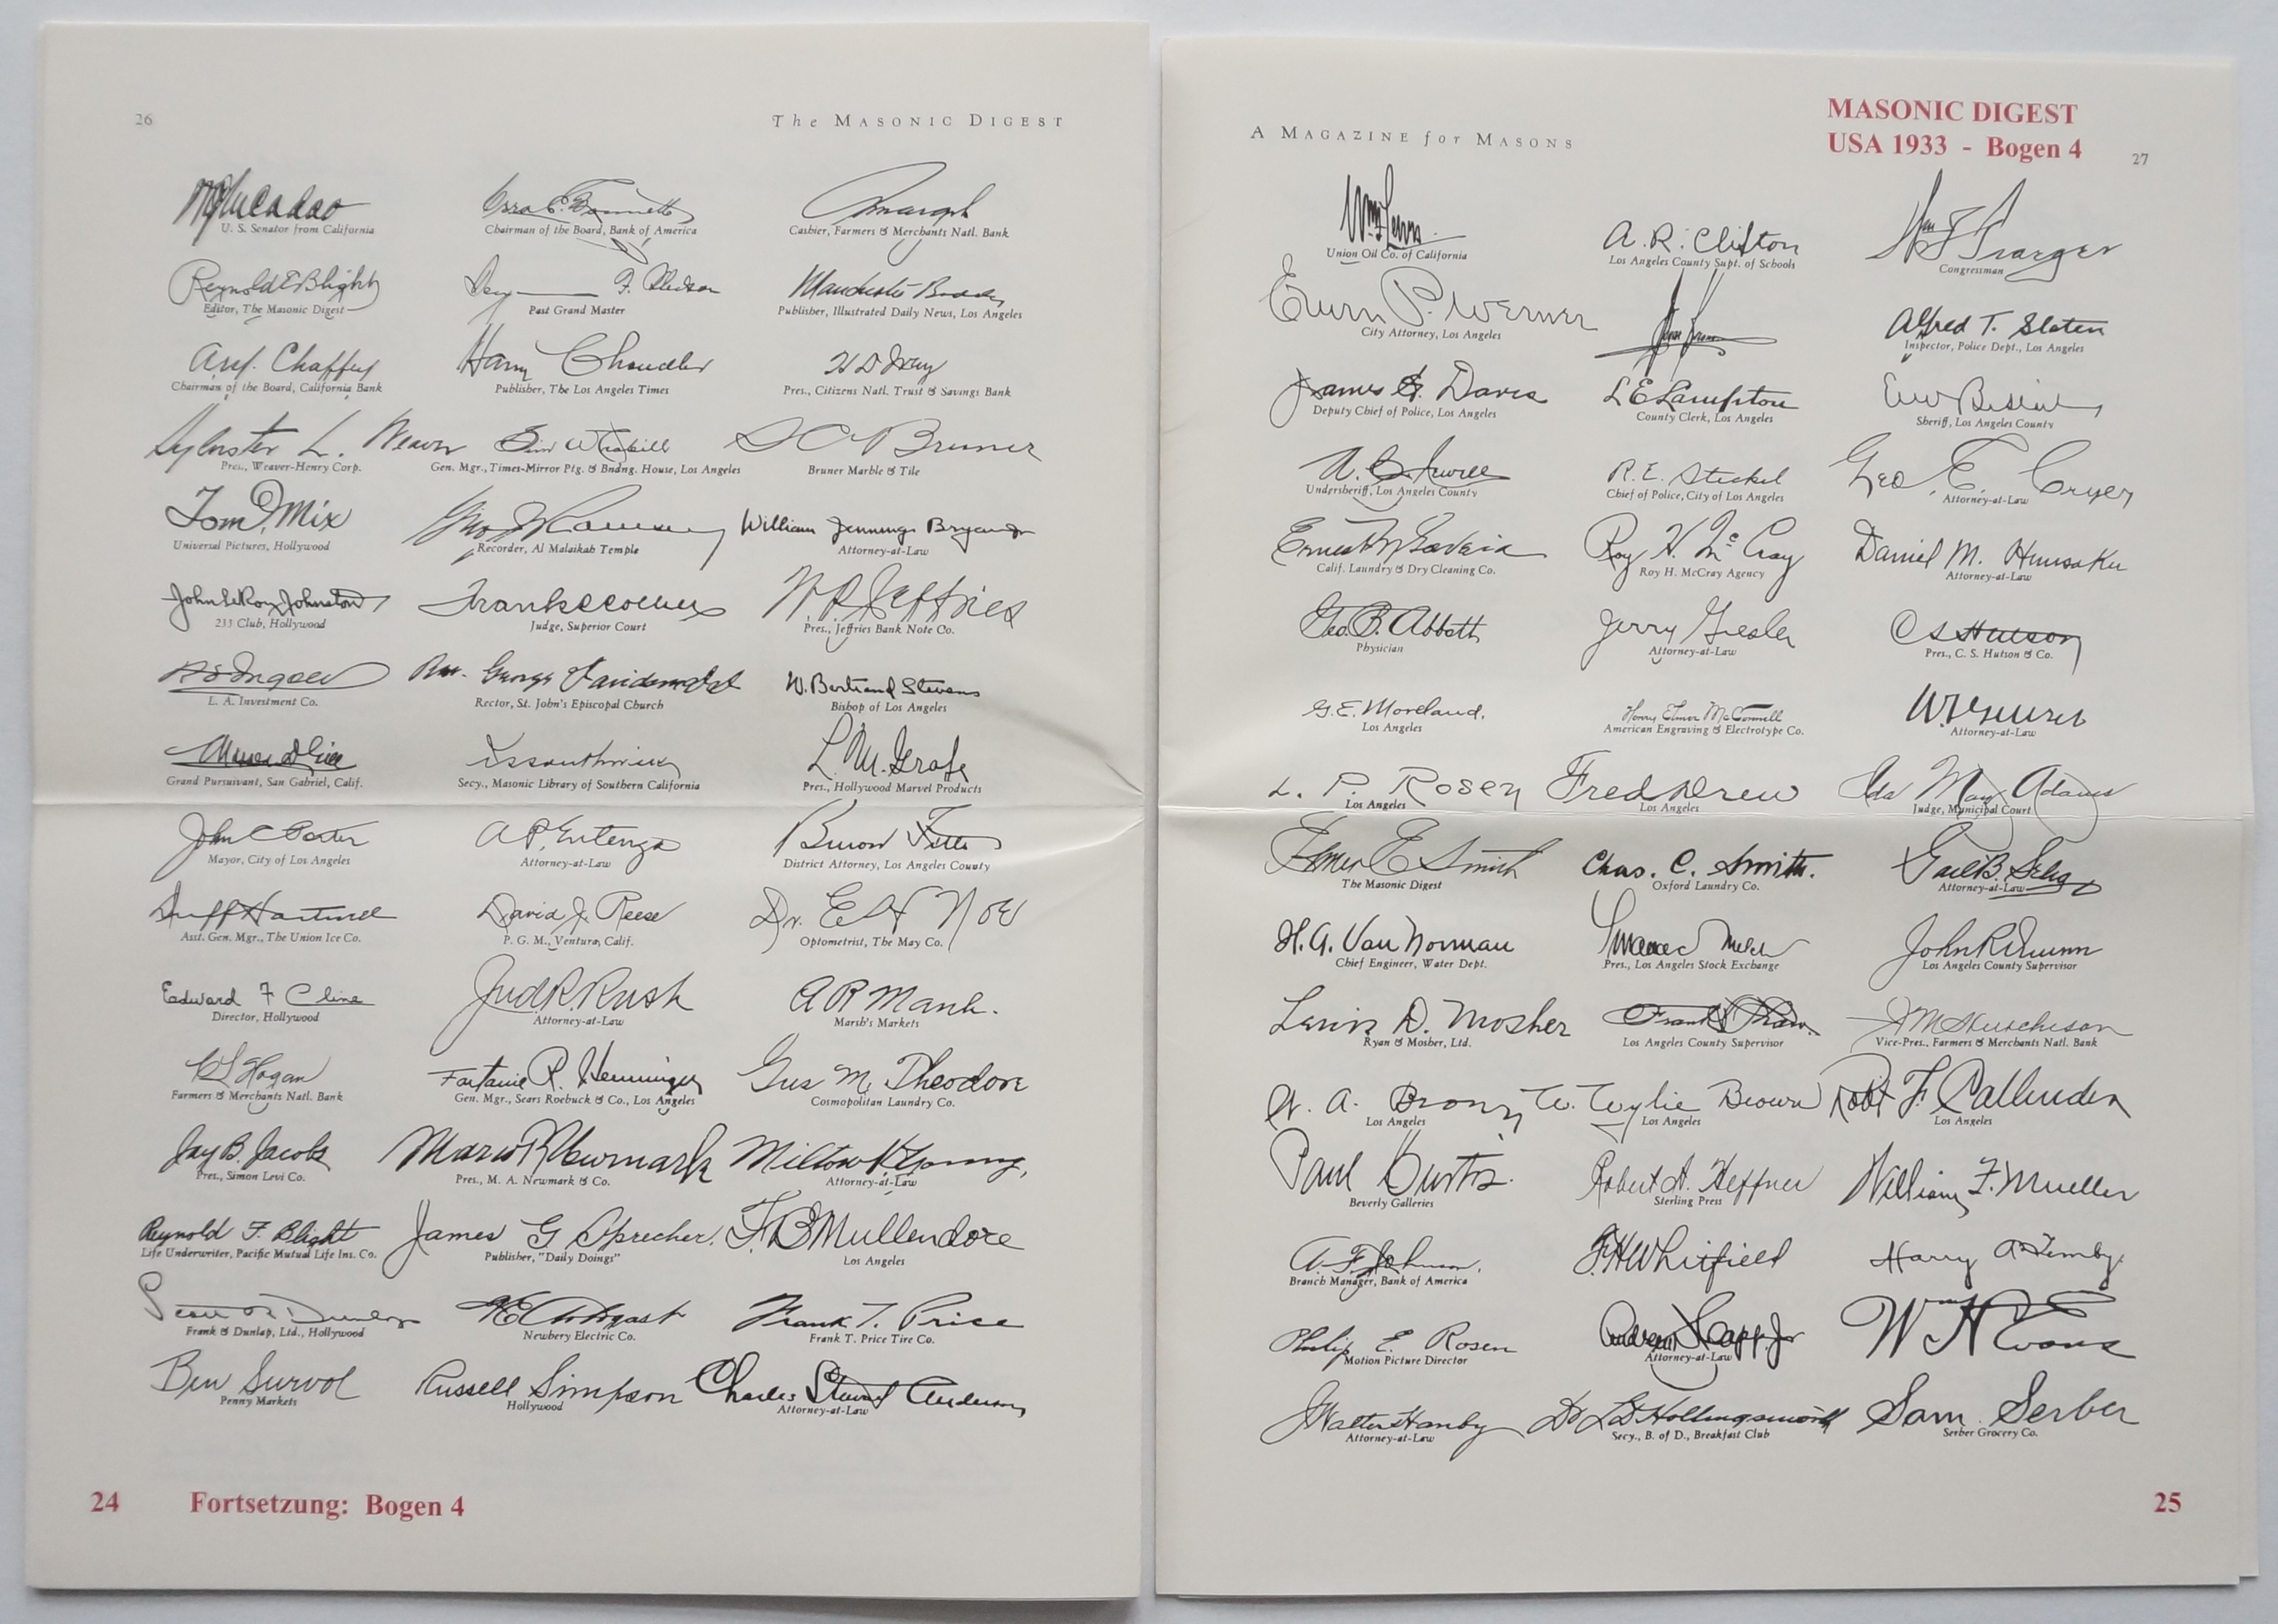 26
The MASONIC DIGEST
U. S. Senator from California
Chairman of the Board, Bank of America
Cashier, Farmers & Merchants Natl. Bank
Reynold E Blight
Editor, The Masonic Digest
Past Grand Master
Publisher, Illustrated Daily News, Los Angeles
Chaffey
Harry Chandler
Chairman of the Board, California Bank
Publisher, The Los Angeles Times
Pres., Citizens Natl. Trust & Savings Bank
Sylvester L. Weaver
Bruner
Pres., Weaver-Henry Corp.
Gen. Mgr., Times-Mirror Ptg. & Bndng. House, Los Angeles
Bruner Marble & Tile
Tom Mix
William Jennings Bryan Jr
Universal Pictures, Hollywood
Recorder, Al Malaikah Temple
Attorney-at-Law
John LeRoy Johnston
W. P. Jeffries
233 Club, Hollywood
Judge, Superior Court
Pres., Jeffries Bank Note Co.
Rev. George Davidson
W. Bertrand Stevens
L. A. Investment Co.
Rector, St. John's Episcopal Church
Bishop of Los Angeles
L. M. Grafe
Grand Pursuivant, San Gabriel, Calif.
Secy., Masonic Library of Southern California
Pres., Hollywood Marvel Products
John C Porter
A P. Entenza
Buron Fitts
Mayor, City of Los Angeles
Attorney-at-Law
District Attorney, Los Angeles County
David J. Reese
Dr. E H Noe
Asst. Gen. Mgr., The Union Ice Co.
P. G. M., Ventura, Calif.
Optometrist, The May Co.
Edward F Cline
Jud R. Rush
A R Marsh.
Director, Hollywood
Attorney-at-Law
Marsh's Markets
Hogan
Henninger
Gus M. Theodore
Farmers & Merchants Natl. Bank
Gen. Mgr., Sears Roebuck & Co., Los Angeles
Cosmopolitan Laundry Co.
Jay B. Jacobs
Marco R Newmark
Milton K Young,
Pres., Simon Levi Co.
Pres., M. A. Newmark & Co.
Attorney-at-Law
Reynold F. Blight
James G Sprecher.
F. B Mullendore
Life Underwriter, Pacific Mutual Life Ins. Co.
Publisher, "Daily Doings"
Los Angeles
Dunlap
Frank T. Price
Frank & Dunlap, Ltd., Hollywood
Newbery Electric Co.
Frank T. Price Tire Co.
Ben Survol
Russell Simpson
Charles Stewart Anderson
Penny Markets
Hollywood
Attorney-at-Law
24 Fortsetzung: Bogen 4
A MAGAZINE for MASONS
MASONIC DIGEST
USA 1933 - Bogen 4
27
Wm Lewis
A. R. Clifton
Wm I Traeger
Union Oil Co. of California
Los Angeles County Supt. of Schools
Congressman
Erwin P. Werner
Alfred T. Slaten
City Attorney, Los Angeles
Inspector, Police Dept., Los Angeles
James E. Davis
L E Lampton
Deputy Chief of Police, Los Angeles
County Clerk, Los Angeles
Sheriff, Los Angeles County
R. E. Steckel
Geo. E. Cryer
Undersheriff, Los Angeles County
Chief of Police, City of Los Angeles
Attorney-at-Law
Roy H. McCray
Daniel M. Hunsaker
Calif. Laundry & Dry Cleaning Co.
Roy H. McCray Agency
Attorney-at-Law
Geo. B. Abbott
Jerry Giesler
C S Hutson
Physician
Attorney-at-Law
Pres., C. S. Hutson & Co.
G. E. Moreland.
Henry Elmer McConnell
Los Angeles
American Engraving & Electrotype Co.
Attorney-at-Law
L. P. Rosen
Fred Drew
Ida May Adams
Los Angeles
Los Angeles
Judge, Municipal Court
Elmer E Smith
Chas. C. Smith.
Gail B. Selig
The Masonic Digest
Oxford Laundry Co.
Attorney-at-Law
H. A. Van Norman
John R Quinn
Chief Engineer, Water Dept.
Pres., Los Angeles Stock Exchange
Los Angeles County Supervisor
Lewis D. Mosher
Frank L Shaw.
J M Hutchison
Ryan & Mosher, Ltd.
Los Angeles County Supervisor
Vice-Pres., Farmers & Merchants Natl. Bank
W. Wylie Brown
Robt F. Callender
Los Angeles
Los Angeles
Los Angeles
Paul Kurtis.
Robert A. Heffner
William F. Mueller
Beverly Galleries
Sterling Press
A. F. Johnson.
F. H Whitfield
Harry
Branch Manager, Bank of America
Philip E. Rosen
Andrew Sapp. Jr
Wm H Evans
Motion Picture Director
Attorney-at-Law
J Walter Hanby
Dr L D Hollingsworth
Sam Serber
Attorney-at-Law
Secy., B. of D., Breakfast Club
Serber Grocery Co.
25